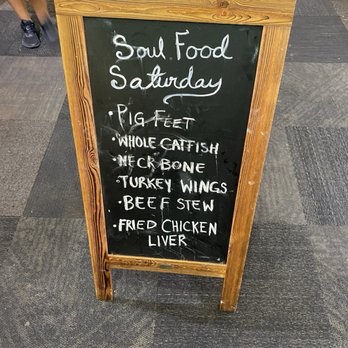 Soul Food
Saturday
• PIG FEET
• WHOLE CATFISH
• NECK BONE
• TURKEY WINGS
• BEEF STEW
• FRIED CHICKEN
LIVER